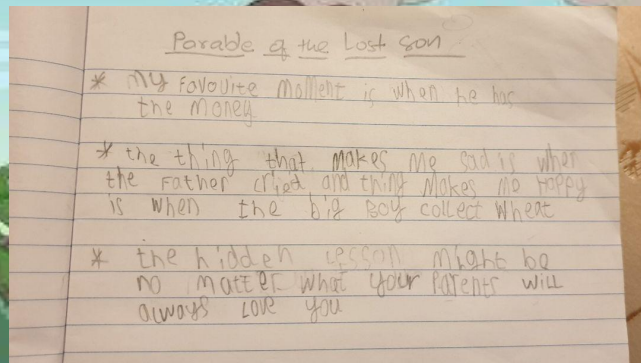 Parable of the Lost Son
* My Favouite Moment is when he has
the money
* the thing that makes me sad is when
the Father cried and thing Makes me Happy
is when the big Boy collect wheat
* the hidden Lesson might be
no matter what your Parents will
always Love you